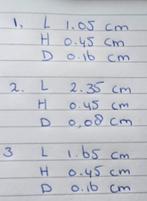 1. L 1.05 cm
H 0.45 cm
D 0.16 cm
2. L 2.35 cm
H 0.45 cm
D 0,08 cm
3 L 1.65 cm
H 0.45 cm
D 0.16 cm